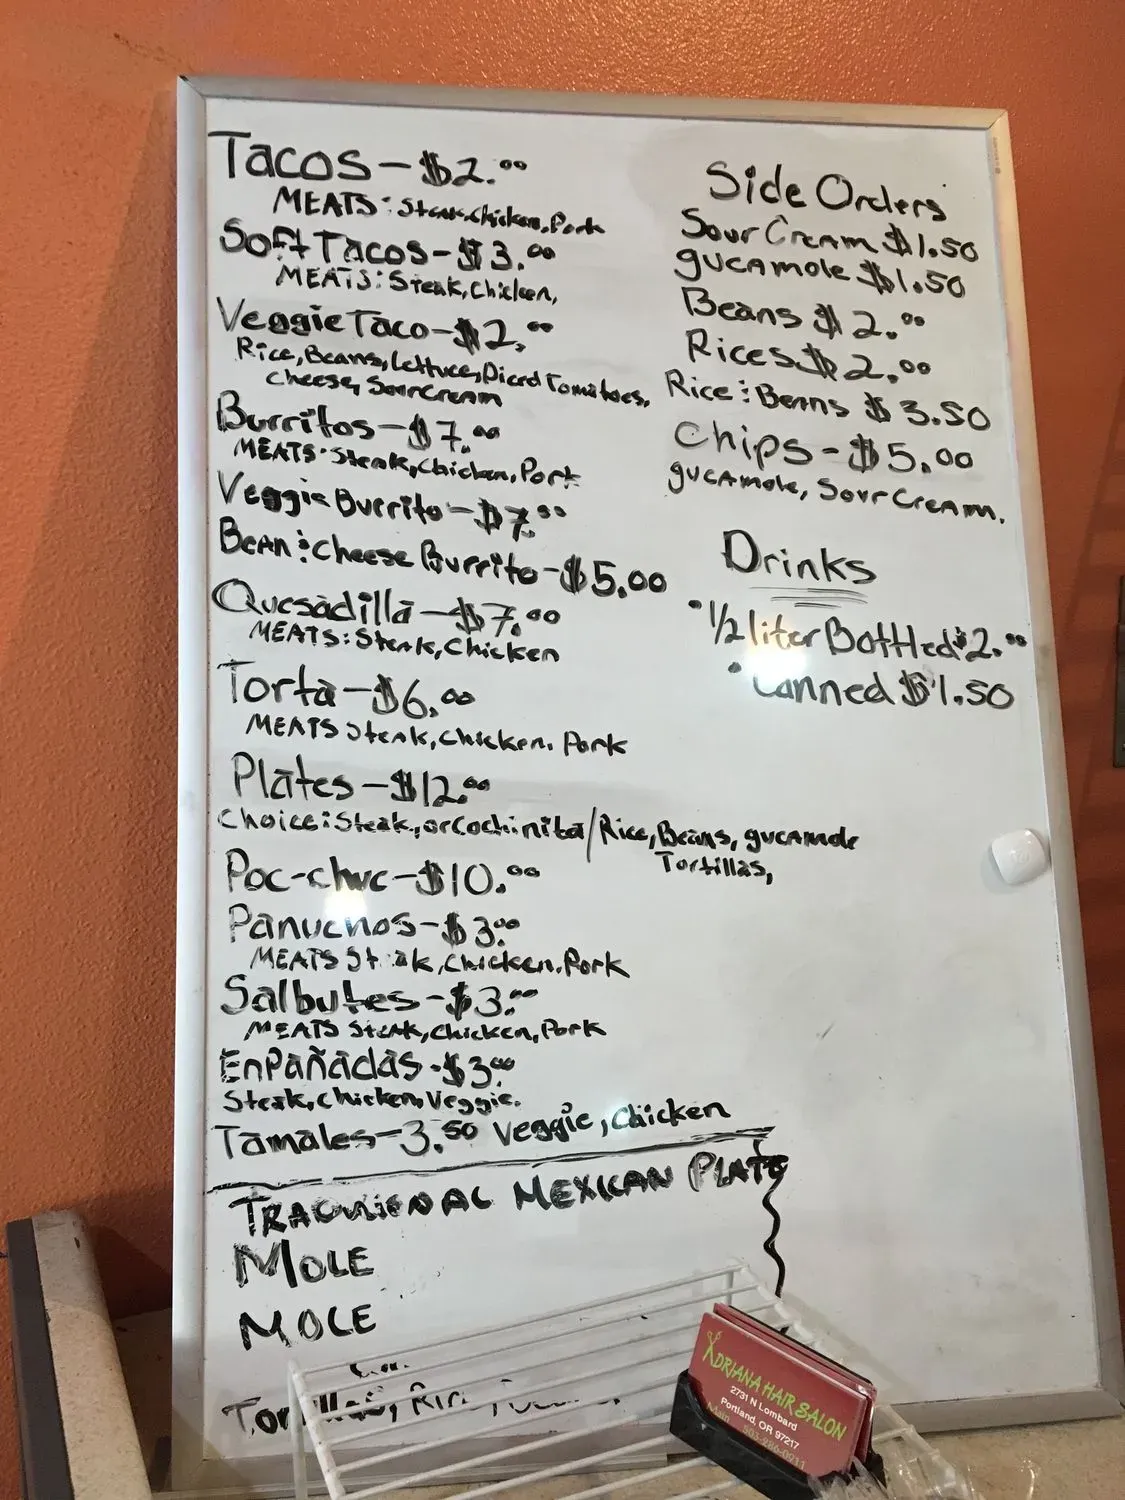 Tacos-$2.00
MEATS: Steak, Chicken, Pork
Soft Tacos-$3.00
MEATS: Steak, Chicken,
Veggie Taco-$2.00
Rice, Beans, Lettuce, Diced Tomatoes,
Cheese, Sour Cream
Burritos-$7.00
MEATS: Steak, Chicken, Pork
Veggie Burrito-$7.00
Bean & Cheese Burrito-$5.00
Quesadilla-$7.00
MEATS: Steak, Chicken
Torta-$6.00
MEATS Steak, Chicken, Pork
Plates-$12.00
Choice: Steak, or Cochinita/Rice, Beans, gucamole
Tortillas,
Poc-chuc-$10.00
Panuchos-$3.00
MEATS Steak, Chicken, Pork
Salbutes-$3.00
MEATS Steak, Chicken, Pork
EnPañadas-$3.00
Steak, Chicken, Veggie.
Tamales-3.50 Veggie, Chicken
TRADICIONAL MEXICAN PLATE
MOLE
MOLE
Side Orders
Sour Cream $1.50
gucamole $1.50
Beans $2.00
Rices $2.00
Rice & Beans $3.50
Chips-$5.00
gucamole, Sour Cream.
Drinks
• 1/2 liter Bottled $2.00
• Canned $1.50
ADRIANA HAIR SALON
2731 N Lombard
Portland, OR 97217
Main 503-286-0911